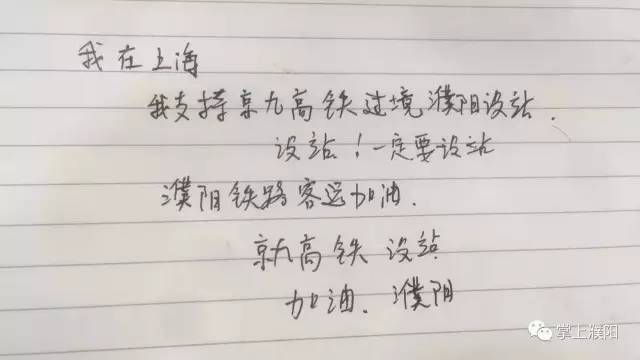 我在上海
我支持京九高铁过境濮阳设站.
设站！一定要设站
濮阳铁路客运加油.
京九高铁 设站
加油. 濮阳
掌上濮阳